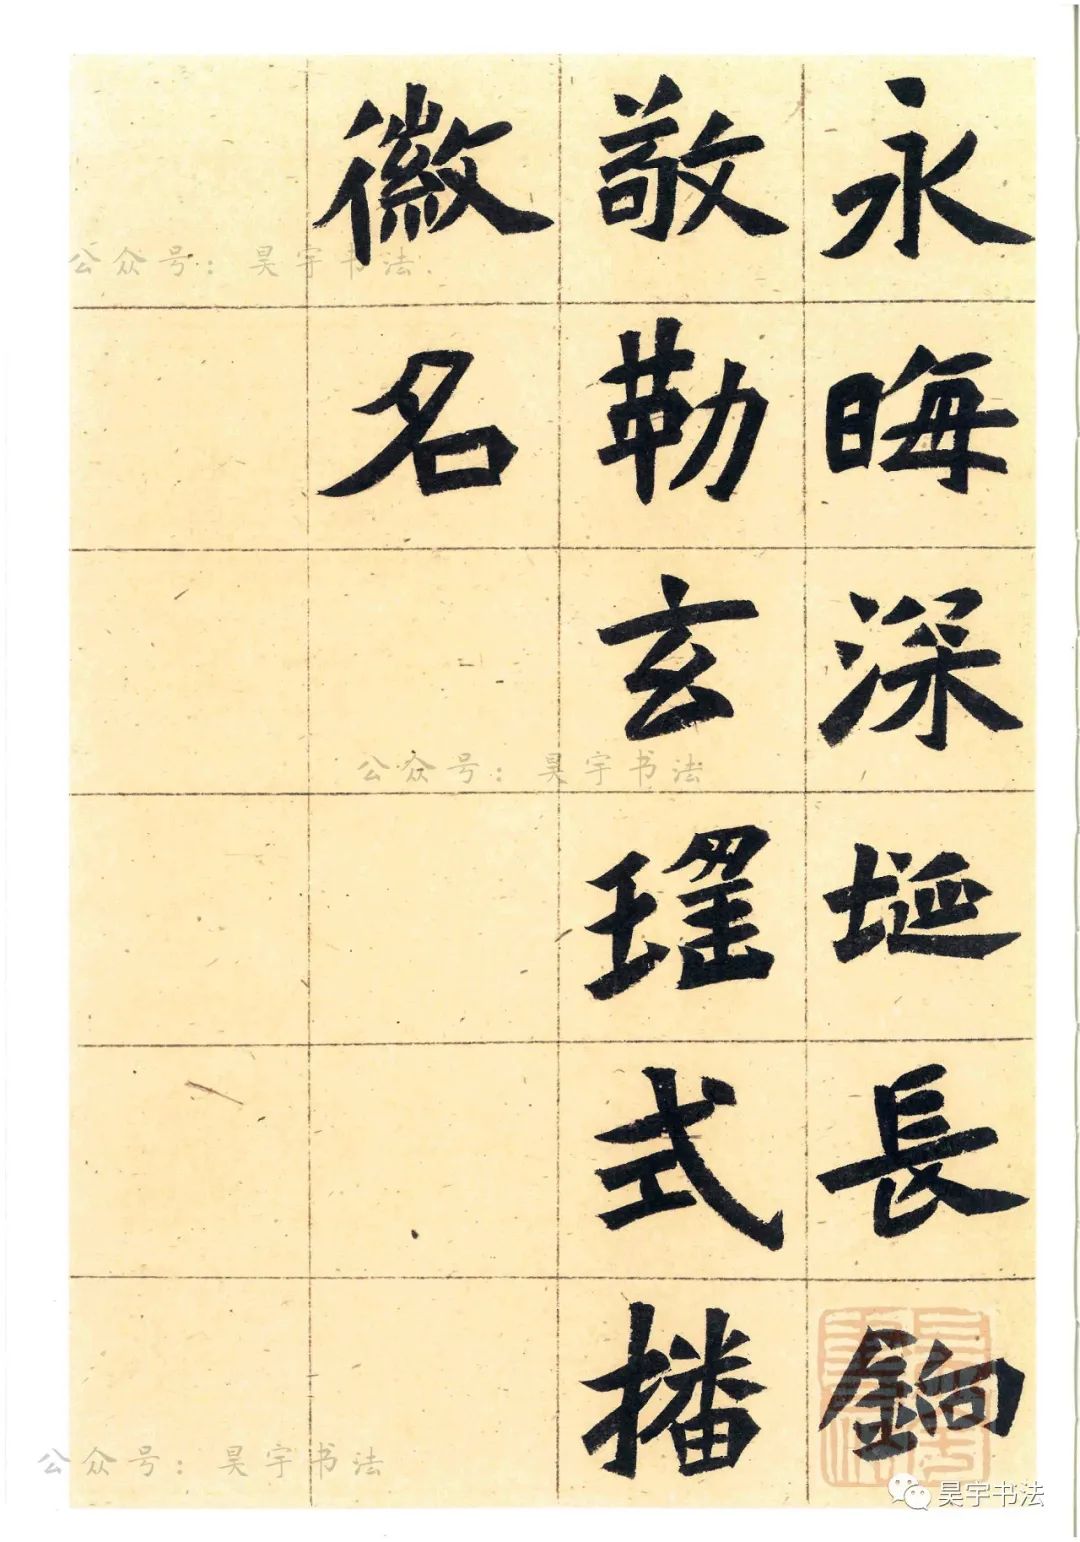 永晦深埏長
敬勒玄瑤式播
徽名
公众号：昊宇书法
公众号：昊宇书法
公众号：昊宇书法
昊宇书法